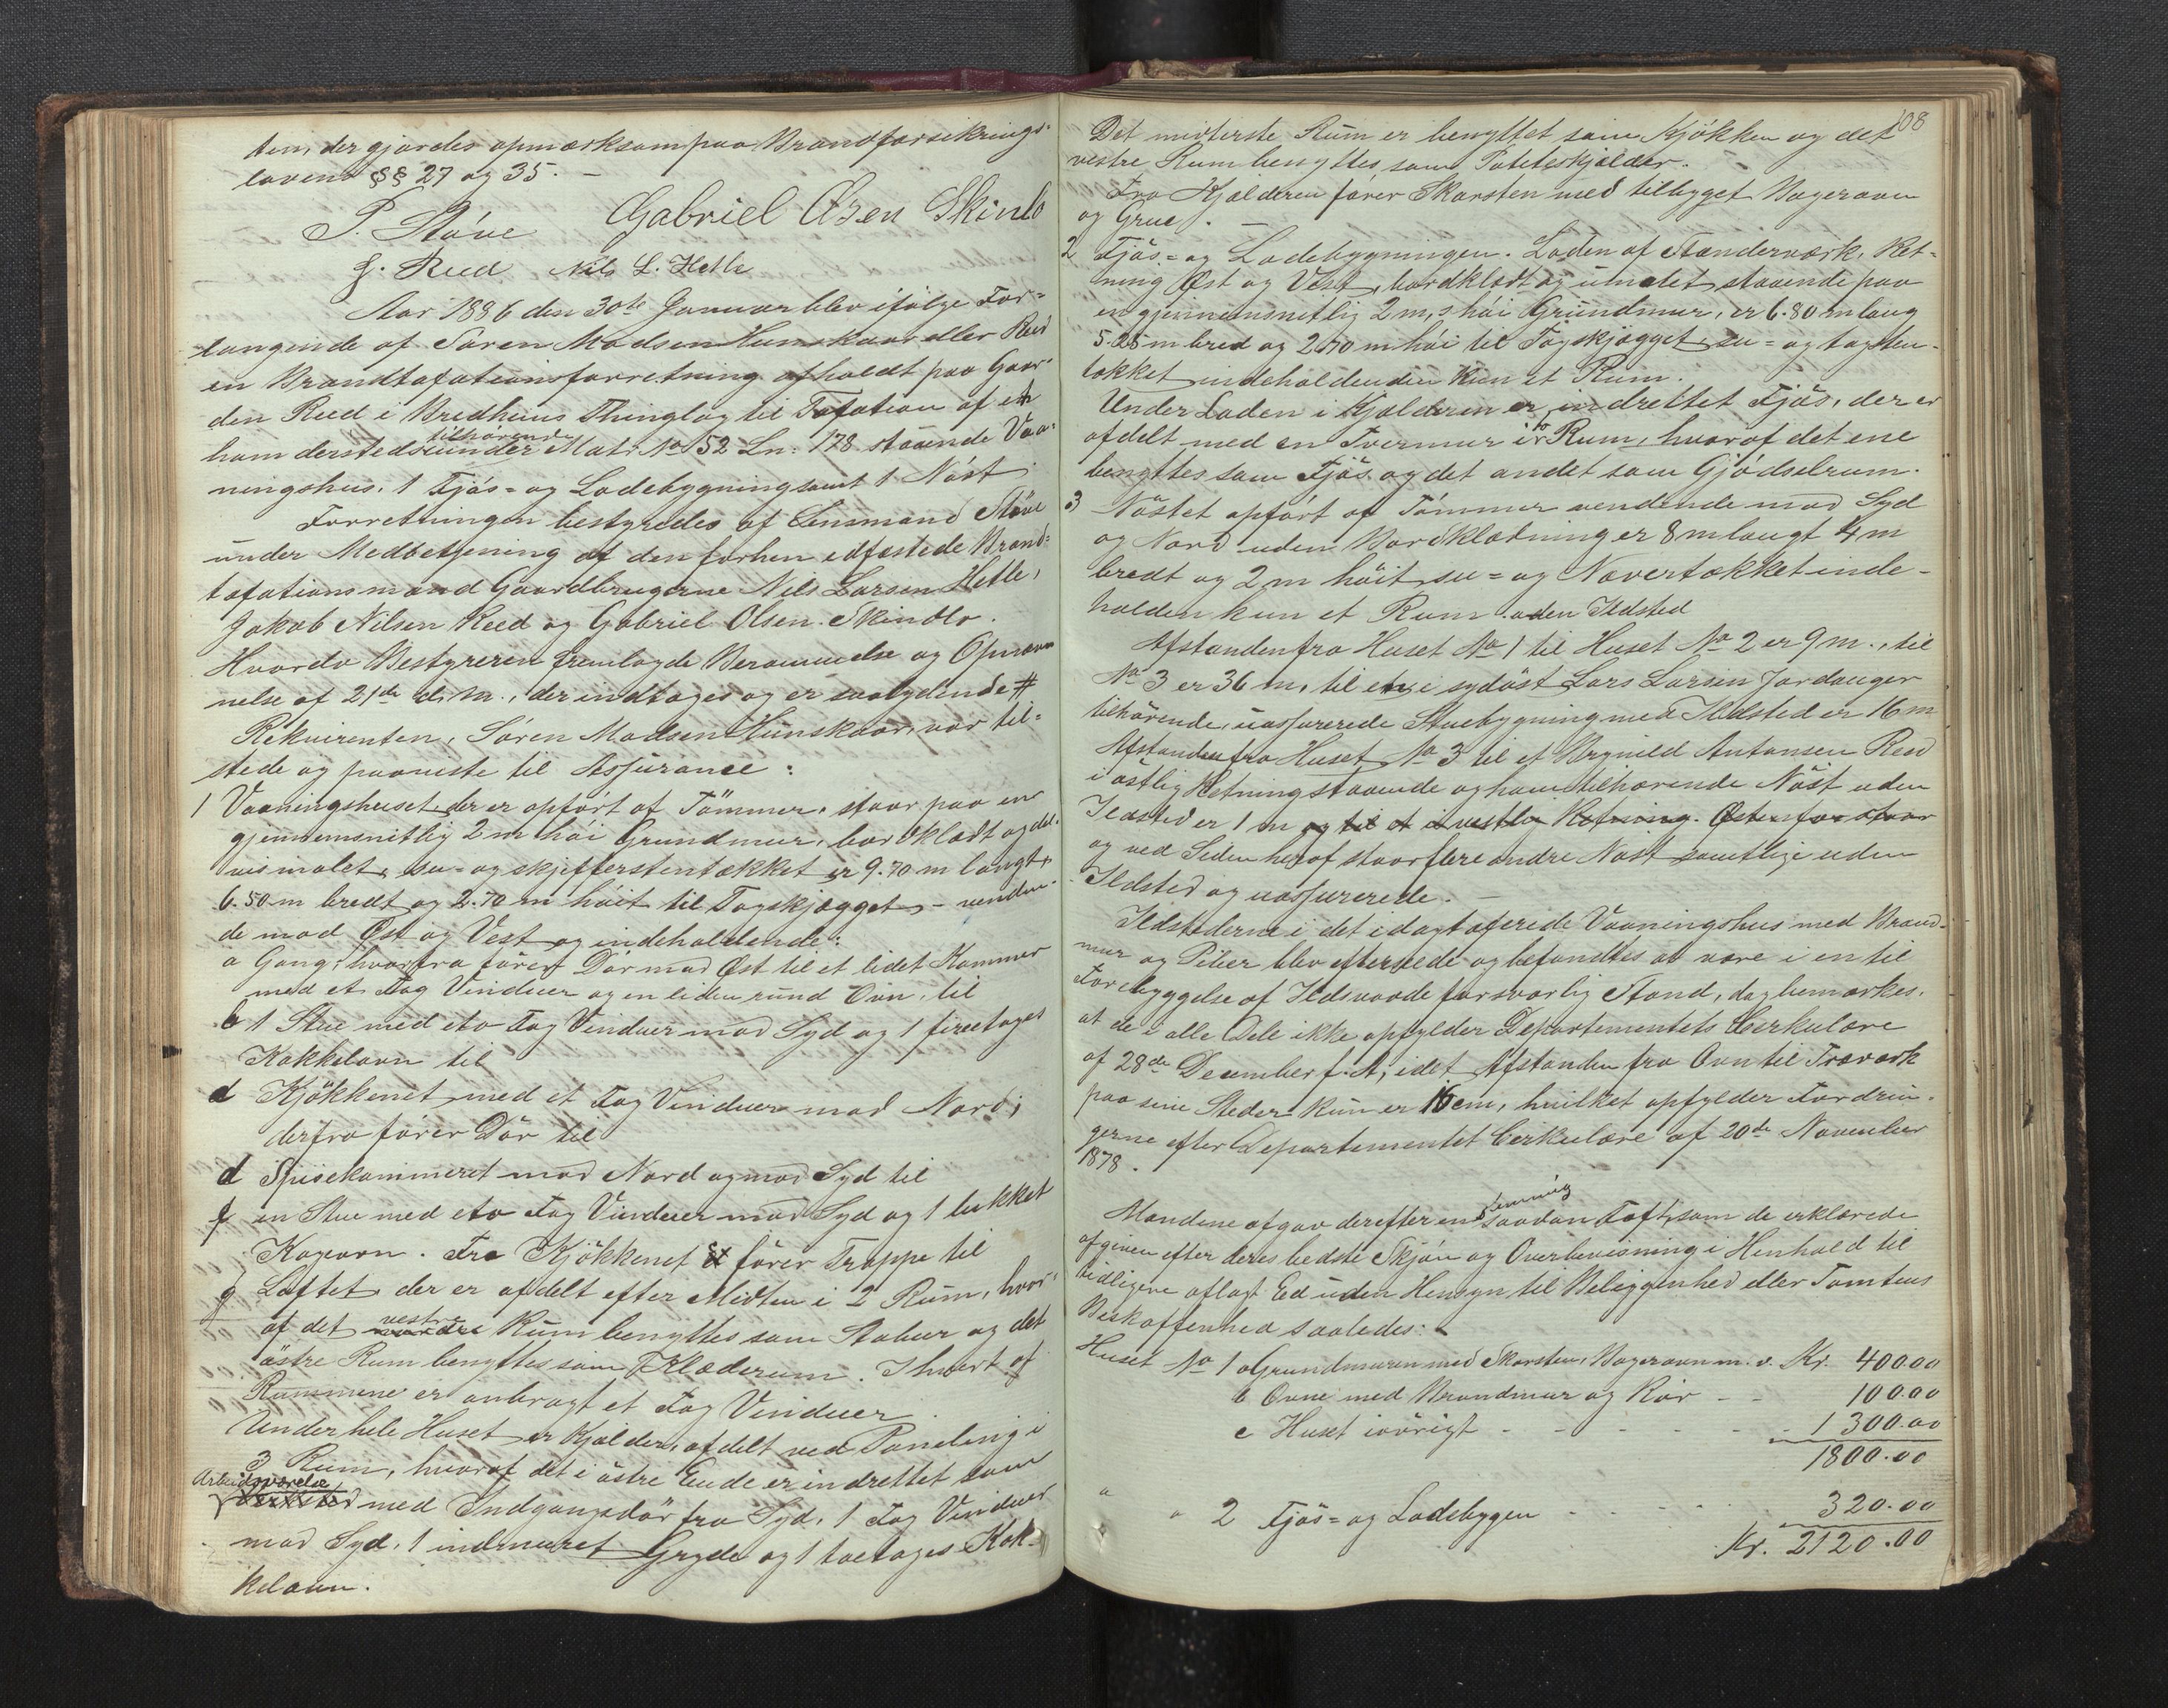 ten, der gjordes opmærksom paa Brandforsikrings-
lovens §§ 27 og 35. –
P. Støve Gabriel Olsen Skinlo
J. Reed Nils L. Hetle
Aar 1886 den 30te Januar blev ifølge For-
langende af Søren Madsen Hunskaar eller Reed
en Brandtaxationsforretning afholdt paa Gaar-
den Reed i Bredheims Thinglag til Taxation af et
ham dersteds tilhørende under Matr. No 52 Ln: 178 staaende Vaa-
ningshus, 1 Fjøs- og Ladebygning samt 1 Nøst.
Forretningen bestyredes af Lensmand Støve
under Medbetjening af den forhen edfæstede Brand-
taxationsmænd Gaardbrugerne Nils Larsen Hetle,
Jakob Nilsen Reed og Gabriel Olsen Skindlo.
Hvorda Bestyreren fremlagde Berammelse og Opnæv-
nelse af 21de d.M., der indtages og er saalydende #
Rekvirenten, Søren Madsen Hunskaar, var til-
stede og paaviste til Assurance:
1 Vaaningshuset, der er opført af Tømmer, staar paa en
gjennemsnitlig 2 m høi Grundmur, bordklædt og del-
vis malet, su- og skjefferstentækket er 9.70 m langt,
6.50 m bredt og 2.70 m høit til Tagskjægget, – venden-
de mod Øst og Vest og indeholdende:
a Gang, hvorfra fører Dør mod Øst til et lidet Kammer
med et Fag Vinduer og en liden rund Ovn, til
b 1 Stue med eto Fag Vinduer mod Syd og 1 fireetages
Kakkelovn til
d Kjøkkenet med et Fag Vinduer mod Nord;
derfra fører Dør til
d Spisekammeret mod Nord og mod Syd til
f en Stue med eto Fag Vinduer mod Syd og 1 lukket
Kogeovn. Fra Kjøkkenet fører Trappe til
g Loftet, der er afdelt efter Midten i 2 Rum, hvor-
af det vestre Rum benyttes som Stabur og det
østre Rum benyttes som Klæderum. I hvert af
Rummene er anbragt et Fag Vinduer.
Under hele Huset er Kjælder, afdelt ved Paneling i
3 Rum, hvoraf det i østre Ende er indrettet som
Arbeidsværelse med Indgangsdør fra Syd, 1 Fag Vinduer
mod Syd, 1 indmuret Gryde og 1 toetages Kak-
kelovn.
108
Det midterste Rum er benyttet som Kjøkken og det
vestre Rum benyttes som Poteteskjælder.
Fra Kjælderen fører Skorsten med tilbygget Bagerovn
og Grue. –
2 Fjøs- og Ladebygningen. Laden af Stænderværk, Ret-
ning Øst og Vest, bordklædt og umalet staaende paa
en gjennemsnitlig 2 m, høi Grundmur, er 6.80 m lang
5.25 m bred og 2.70 m høi til Tagskjægget, su- og tagsten-
tækket indeholdenden kun et Rum.
Under Laden i Kjælderen er indrettet Fjøs, der er
afdelt med en Tvermur i to Rum, hvoraf det ene
benyttes som Fjøs og det andet som Gjødselrum.
3 Nøstet opført af Tømmer vendende mod Syd
og Nord uden Bordklædning er 8 m langt 4 m
bredt og 2 m høit, su- og Nævertækket inde-
holden kun et Rum uden Ildsted
Afstanden fra Huset No 1 til Huset No 2 er 9 m., til
No 3 er 36 m, til en i sydøst Lars Larsen Jordanger
tilhørende, uassurerede Stuebygning med Ildsted er 16 m
Afstanden fra Huset No 3 til et Brynild Antonsen Reed
i østlig Retning staaende og ham tilhørende Nøst uden
Ildsted er 1 m og til et i vestlig Retning. Østenfor staar
og ved Siden heraf staar flere andre Nøst samtlige uden
Ildsted og uassurerede. –
Ildstederne i det idag taxerede Vaaningshus med Brand-
mur og Piber blev efterseede og befandtes at være i en til
Forebyggelse af Ildsvaade forsvarlig Stand, dog bemærkes,
at de i alle Dele ikke opfylder Departementets Cirkulære
af 28de December f. A, idet Afstanden fra Ovn til Træværk
paa sine Steder kun er 16 cm, hvilket opfylder Fordrin-
gerne efter Departementet Cirkulære af 20de November
1878.
Mændene afgav derefter en saadan Taxt, som de erklærede
afgiven efter deres bedste Skjøn og Overbevisning i Henhold til
tidligere aflagt Ed uden Hensyn til Beliggenhed eller Tomtens
Beskaffenhed saaledes: –
Huset No 1 a Grundmuren med Skorsten, Bagerovn m. v. Kr. 400.00
b Ovne med Brandmur og Rør – – 100.00
c Huset iøvrigt – – – – – – 1300.00
1800.00
" " 2 Fjøs- og Ladebygen – – – – 320.00
Kr. 2120.00